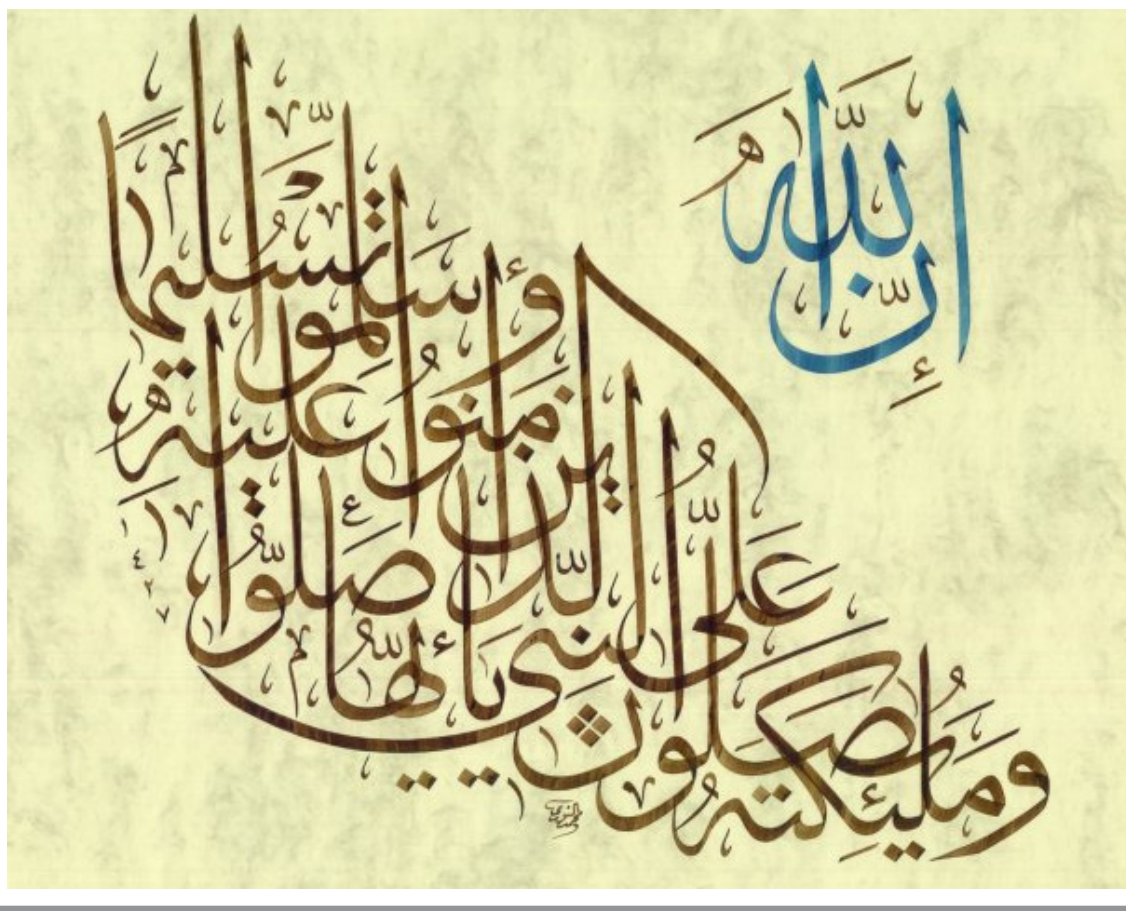 إِنَّ اللَّهَ
وَمَلَٰئِكَتَهُ يُصَلُّونَ
عَلَى النَّبِيِّ يَا أَيُّهَا
الَّذِينَ آمَنُوا صَلُّوا
عَلَيْهِ وَسَلِّمُوا تَسْلِيمًا
١٤٢٧